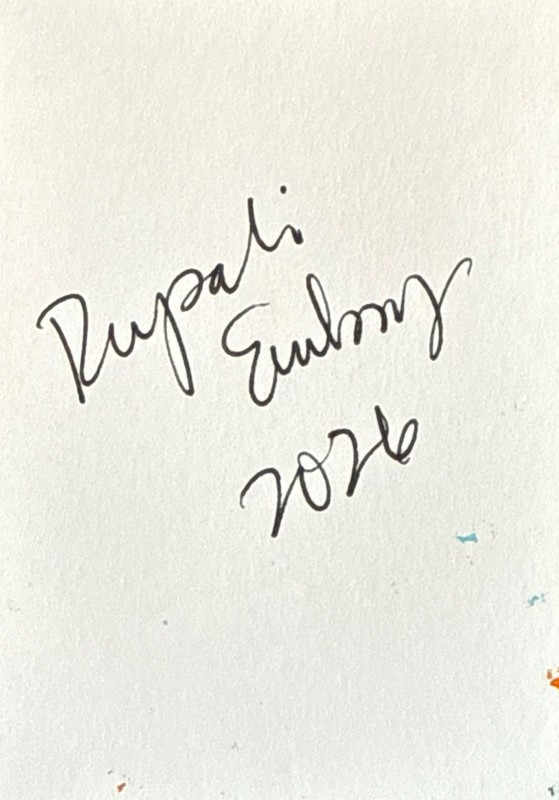 Rupali
Embry
2026